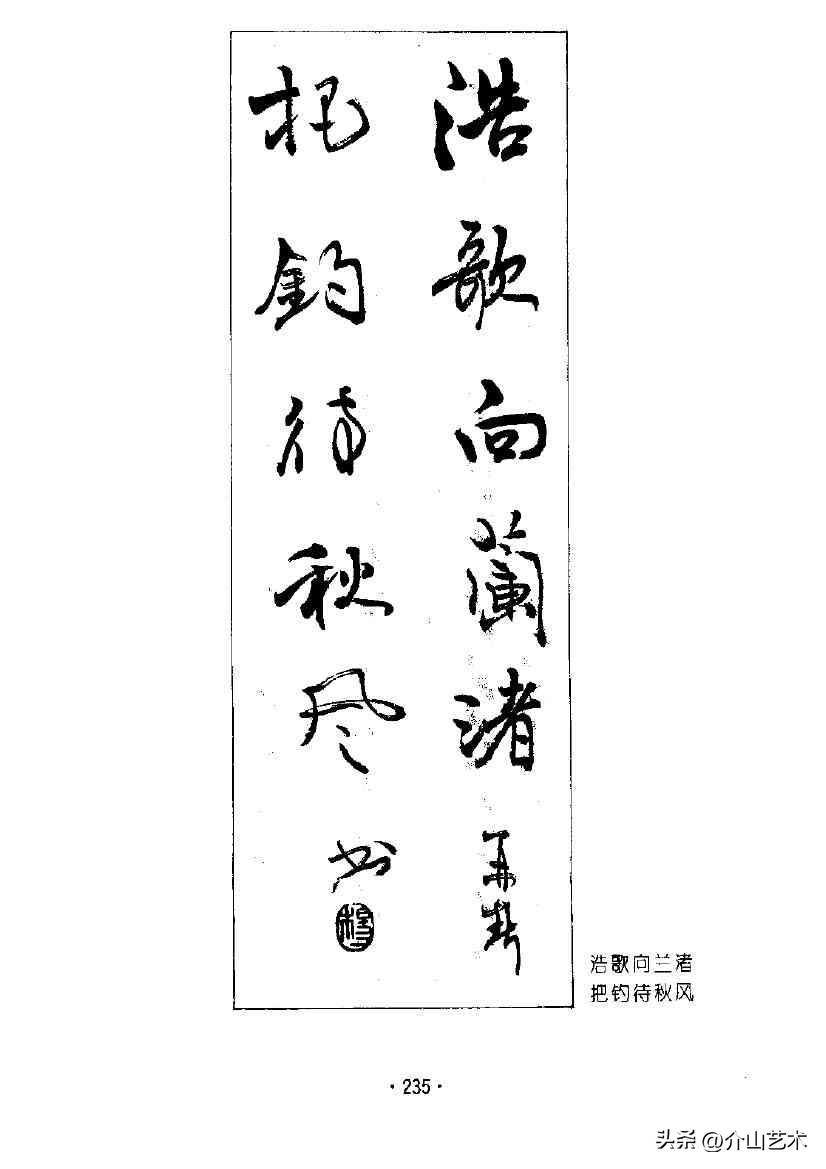 浩歌向蘭渚
把釣待秋风
书
浩歌向兰渚
把钓待秋风
·235·
头条 @介山艺术